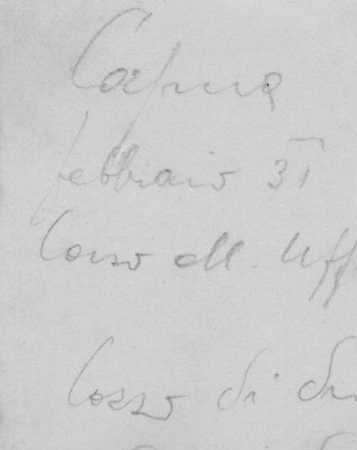 Capua
febbraio 31
Corso All. Uff
Corso di